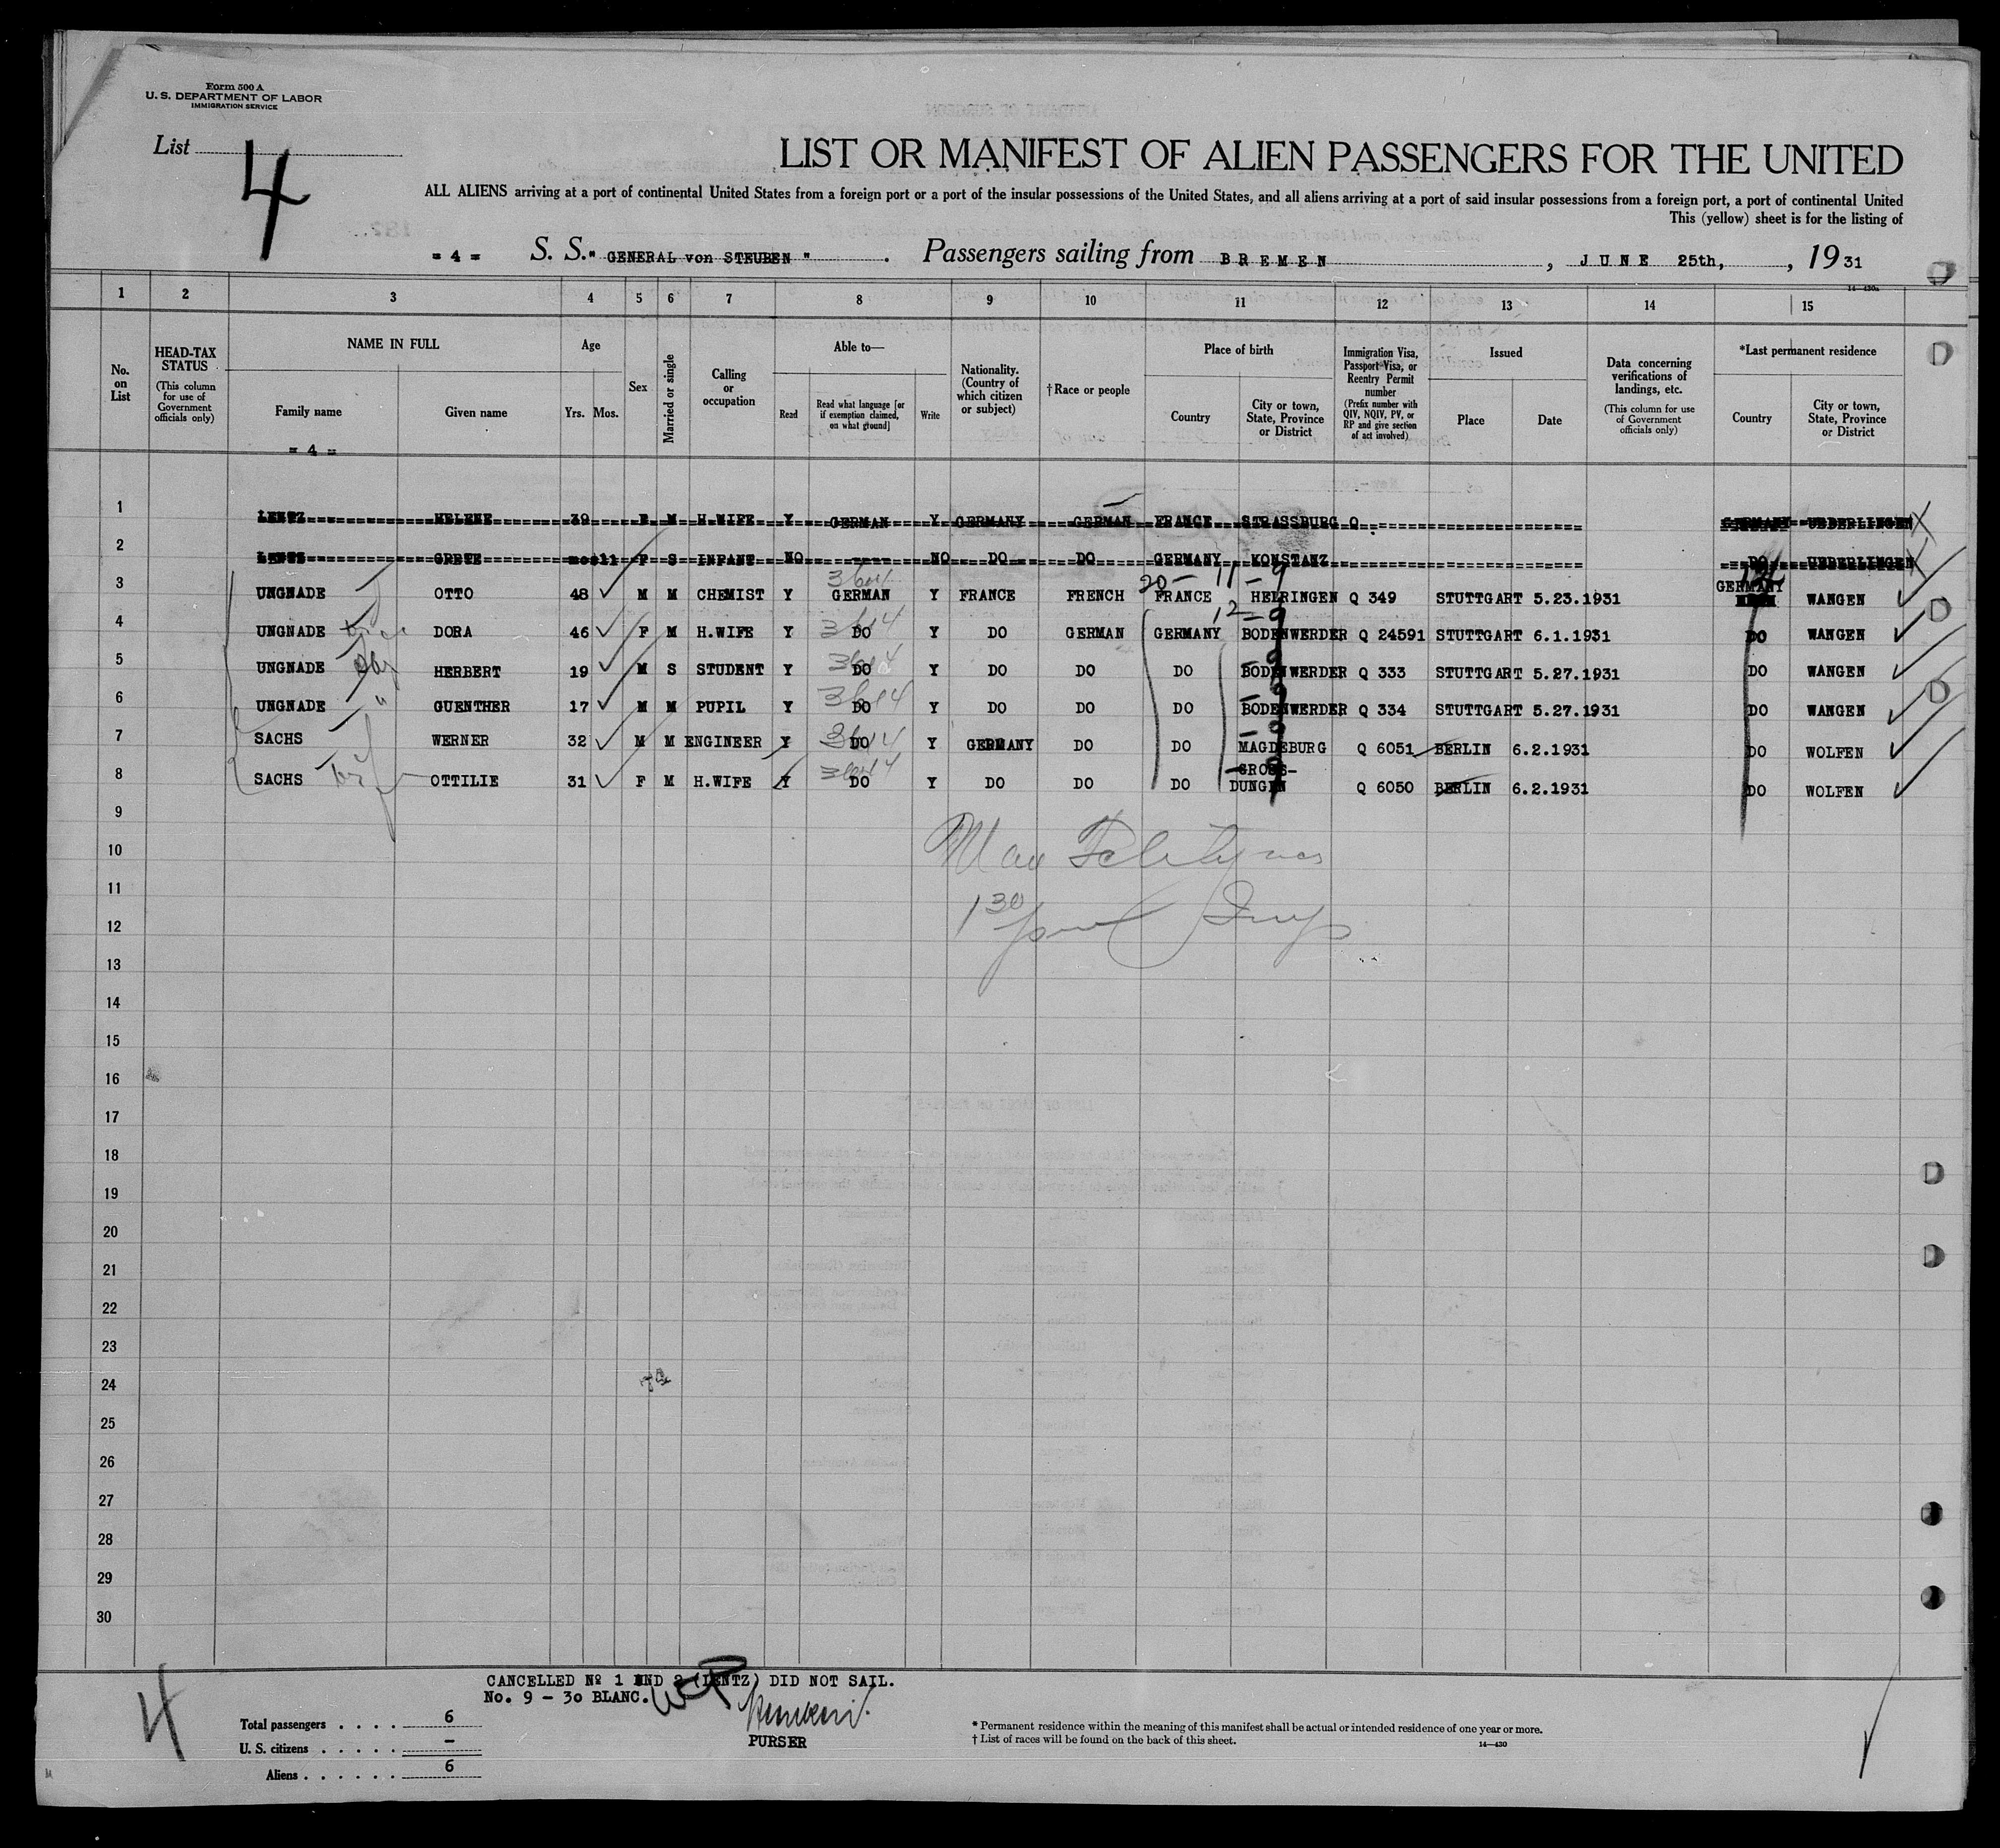 Form 500 A
U. S. DEPARTMENT OF LABOR
IMMIGRATION SERVICE
List 4
LIST OR MANIFEST OF ALIEN PASSENGERS FOR THE UNITED
ALL ALIENS arriving at a port of continental United States from a foreign port or a port of the insular possessions of the United States, and all aliens arriving at a port of said insular possessions from a foreign port, a port of continental United
This (yellow) sheet is for the listing of
= 4 = S. S. " GENERAL von STEUBEN " . Passengers sailing from BREMEN , JUNE 25th, , 19 31
14—430a
1 2 3 4 5 6 7 8 9 10 11 12 13 14 15
No. on List
HEAD-TAX STATUS (This column for use of Government officials only)
NAME IN FULL
Family name Given name
Age
Yrs. Mos.
Sex
Married or single
Calling or occupation
Able to—
Read Read what language [or if exemption claimed, on what ground] Write
Nationality. (Country of which citizen or subject)
† Race or people
Place of birth
Country City or town, State, Province or District
Immigration Visa, Passport Visa, or Reentry Permit number (Prefix number with QIV, NQIV, PV, or RP and give section of act involved)
Issued
Place Date
Data concerning verifications of landings, etc. (This column for use of Government officials only)
*Last permanent residence
Country City or town, State, Province or District
= 4 =
1 LENTZ HELENE 39 F M H.WIFE Y GERMAN Y GERMANY GERMAN FRANCE STRASSBURG Q GERMANY UEBERLINGEN X
2 LENTZ GRETE mos11 F S INFANT NO ---- NO DO DO GERMANY KONSTANZ DO UEBERLINGEN X
3614 20 - 11 - 9
3 UNGNADE OTTO 48 M M CHEMIST Y GERMAN Y FRANCE FRENCH FRANCE HELRINGEN Q 349 STUTTGART 5.23.1931 GERMANY WANGEN
3614 12 - 9
4 UNGNADE DORA 46 F M H.WIFE Y DO Y DO GERMAN GERMANY BODENWERDER Q 24591 STUTTGART 6.1.1931 DO WANGEN
3614 - 9
5 UNGNADE HERBERT 19 M S STUDENT Y DO Y DO DO DO BODENWERDER Q 333 STUTTGART 5.27.1931 DO WANGEN
3614 - 9
6 UNGNADE " GUENTHER 17 M M PUPIL Y DO Y DO DO DO BODENWERDER Q 334 STUTTGART 5.27.1931 DO WANGEN
3614 - 9
7 SACHS WERNER 32 M M ENGINEER Y DO Y GERMANY DO DO MAGDEBURG Q 6051 BERLIN 6.2.1931 DO WOLFEN
3614 - 9
8 SACHS OTTILIE 31 F M H.WIFE Y DO Y DO DO DO GROSS-DUNGEN Q 6050 BERLIN 6.2.1931 DO WOLFEN
9
10
11
12 1 30
13
14
15
16
17
18
19
20
21
22
23
24
25
26
27
28
29
30
CANCELLED № 1 UND 2 (LENTZ) DID NOT SAIL.
No. 9 – 30 BLANC.
4
PURSER
Total passengers . . . . 6
U. S. citizens . . . . . –
Aliens . . . . . . 6
* Permanent residence within the meaning of this manifest shall be actual or intended residence of one year or more.
† List of races will be found on the back of this sheet.
14—430